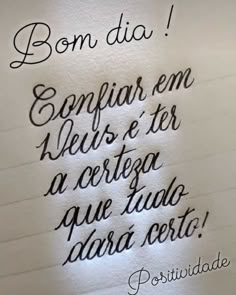 Bom dia !
Confiar em
Deus é ter
a certeza
que tudo
dará certo!
Positividade